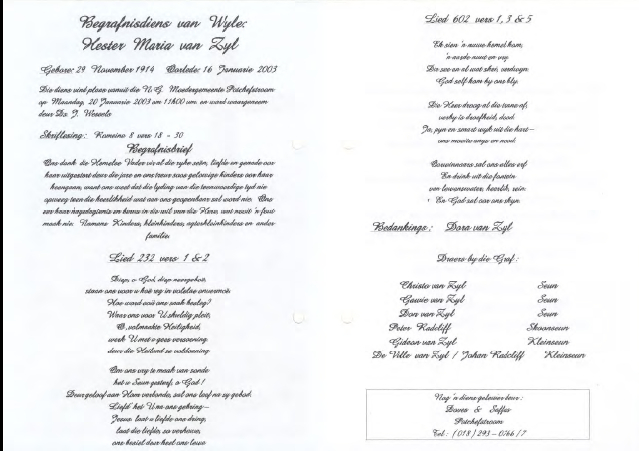 Begrafnisdiens van Wyle:
Hester Maria van Zyl
Gebore: 29 November 1914 Oorlede: 16 Januarie 2003
Die diens vind plaas vanuit die N.G. Moedergemeente Potchefstroom
op Maandag, 20 Januarie 2003 om 11h00 en word waargeneem
deur Ds. J. Wessels
Skriflesing: Romeine 8 vers 18 - 30
Begrafnisbrief
Ons dank die Hemelse Vader vir al die ryke seën, liefde en genade oor
haar uitgestort deur die jare en ons treur soos gelowige kinders oor haar
heengaan, want ons weet dat die lyding van die teenwoordige tyd nie
opweeg teen die heerlikheid wat aan ons geopenbaar sal word nie. Ons
eer haar nagedagtenis en berus in die wil van die Here, wat nooit 'n fout
maak nie. Namens Kinders, kleinkinders, agterkleinkinders en ander
familie.
Lied 232 vers 1 & 2
Diep, o God, diep neergeboë,
staan ons voor u hoë reg in
Hoe word ooit ons saak besleg?
Waar ons voor U skuldig pleit,
O, volmaakte Heiligheid,
werk U met u gees versoening
deur die Heiland se voldoening.
Om ons vry te maak van sonde
het u Seun gesterf, o God!
Deur geloof aan Hom verbonde, sal ons leef na sy gebod.
Liefde het U na ons gebring—
Jesus, laat u liefde ons dring,
laat die liefde, so verhewe,
ons besiel deur heel ons lewe
Lied 602 vers 1, 3 & 5
Ek sien 'n nuwe hemel kom,
'n aarde nuut en vry
Die see en al wat skei, verdwyn:
God self kom by ons bly.
Die Heer droog al die trane af,
verby is droefheid, dood.
Ja, pyn en smart wyk uit die hart—
ons moeite, angs en nood.
Oorwinnaars sal ons alles erf
En drink uit die fontein
van lewenswater, heerlik, rein:
En God sal oor ons skyn.
Bedankings: Dora van Zyl
Draers by die Graf:
Christo van Zyl Seun
Gawie van Zyl Seun
Don van Zyl Seun
Peter Radcliff Skoonseun
Gideon van Zyl Kleinseun
De Ville van Zyl / Johan Radcliff Kleinseun
Nog 'n diens gelewer deur:
Doves & Saffas
Potchefstroom
Tel: (018) 293 - 0266 / 7